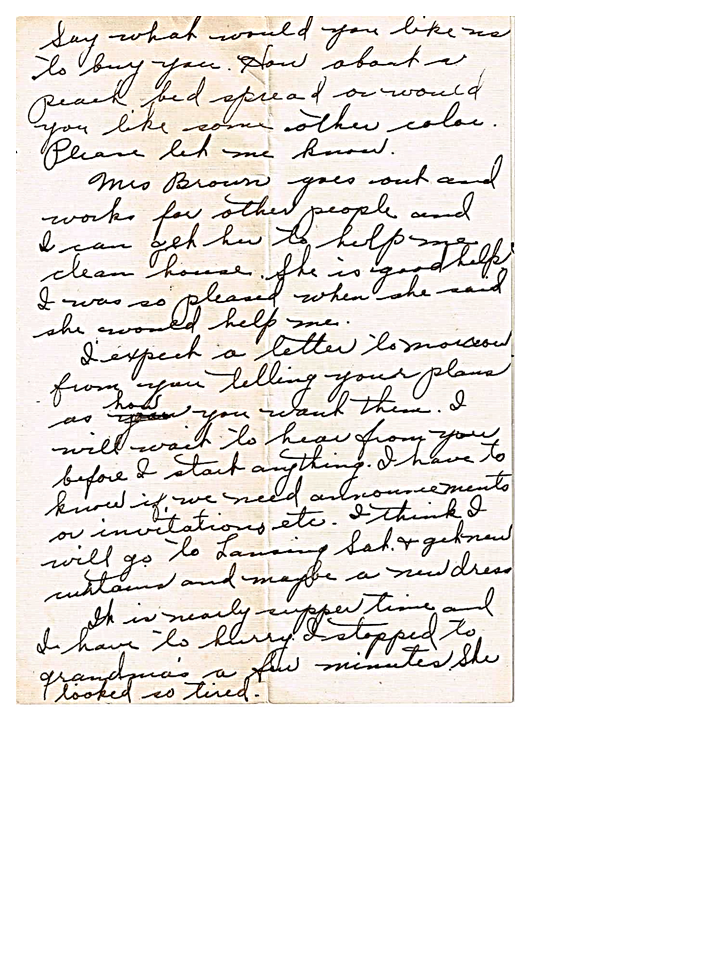 Say what would you like us
to buy you. How about a
peach bed spread or would
you like some other color.
Please let me know.
Mrs Brown goes out and
works for other people and
I can get her to help me
clean house. She is good help
I was so pleased when she said
she would help me.
I expect a letter tomorrow
from you telling your plans
as how you want them. I
will wait to hear from you
before I start anything. I have to
know if we need announcements
or invitations etc. I think I
will go to Lansing Sat. & get new
curtains and maybe a new dress
It is nearly supper time and
I have to hurry. I stopped to
grandma's a few minutes. She
looked so tired.